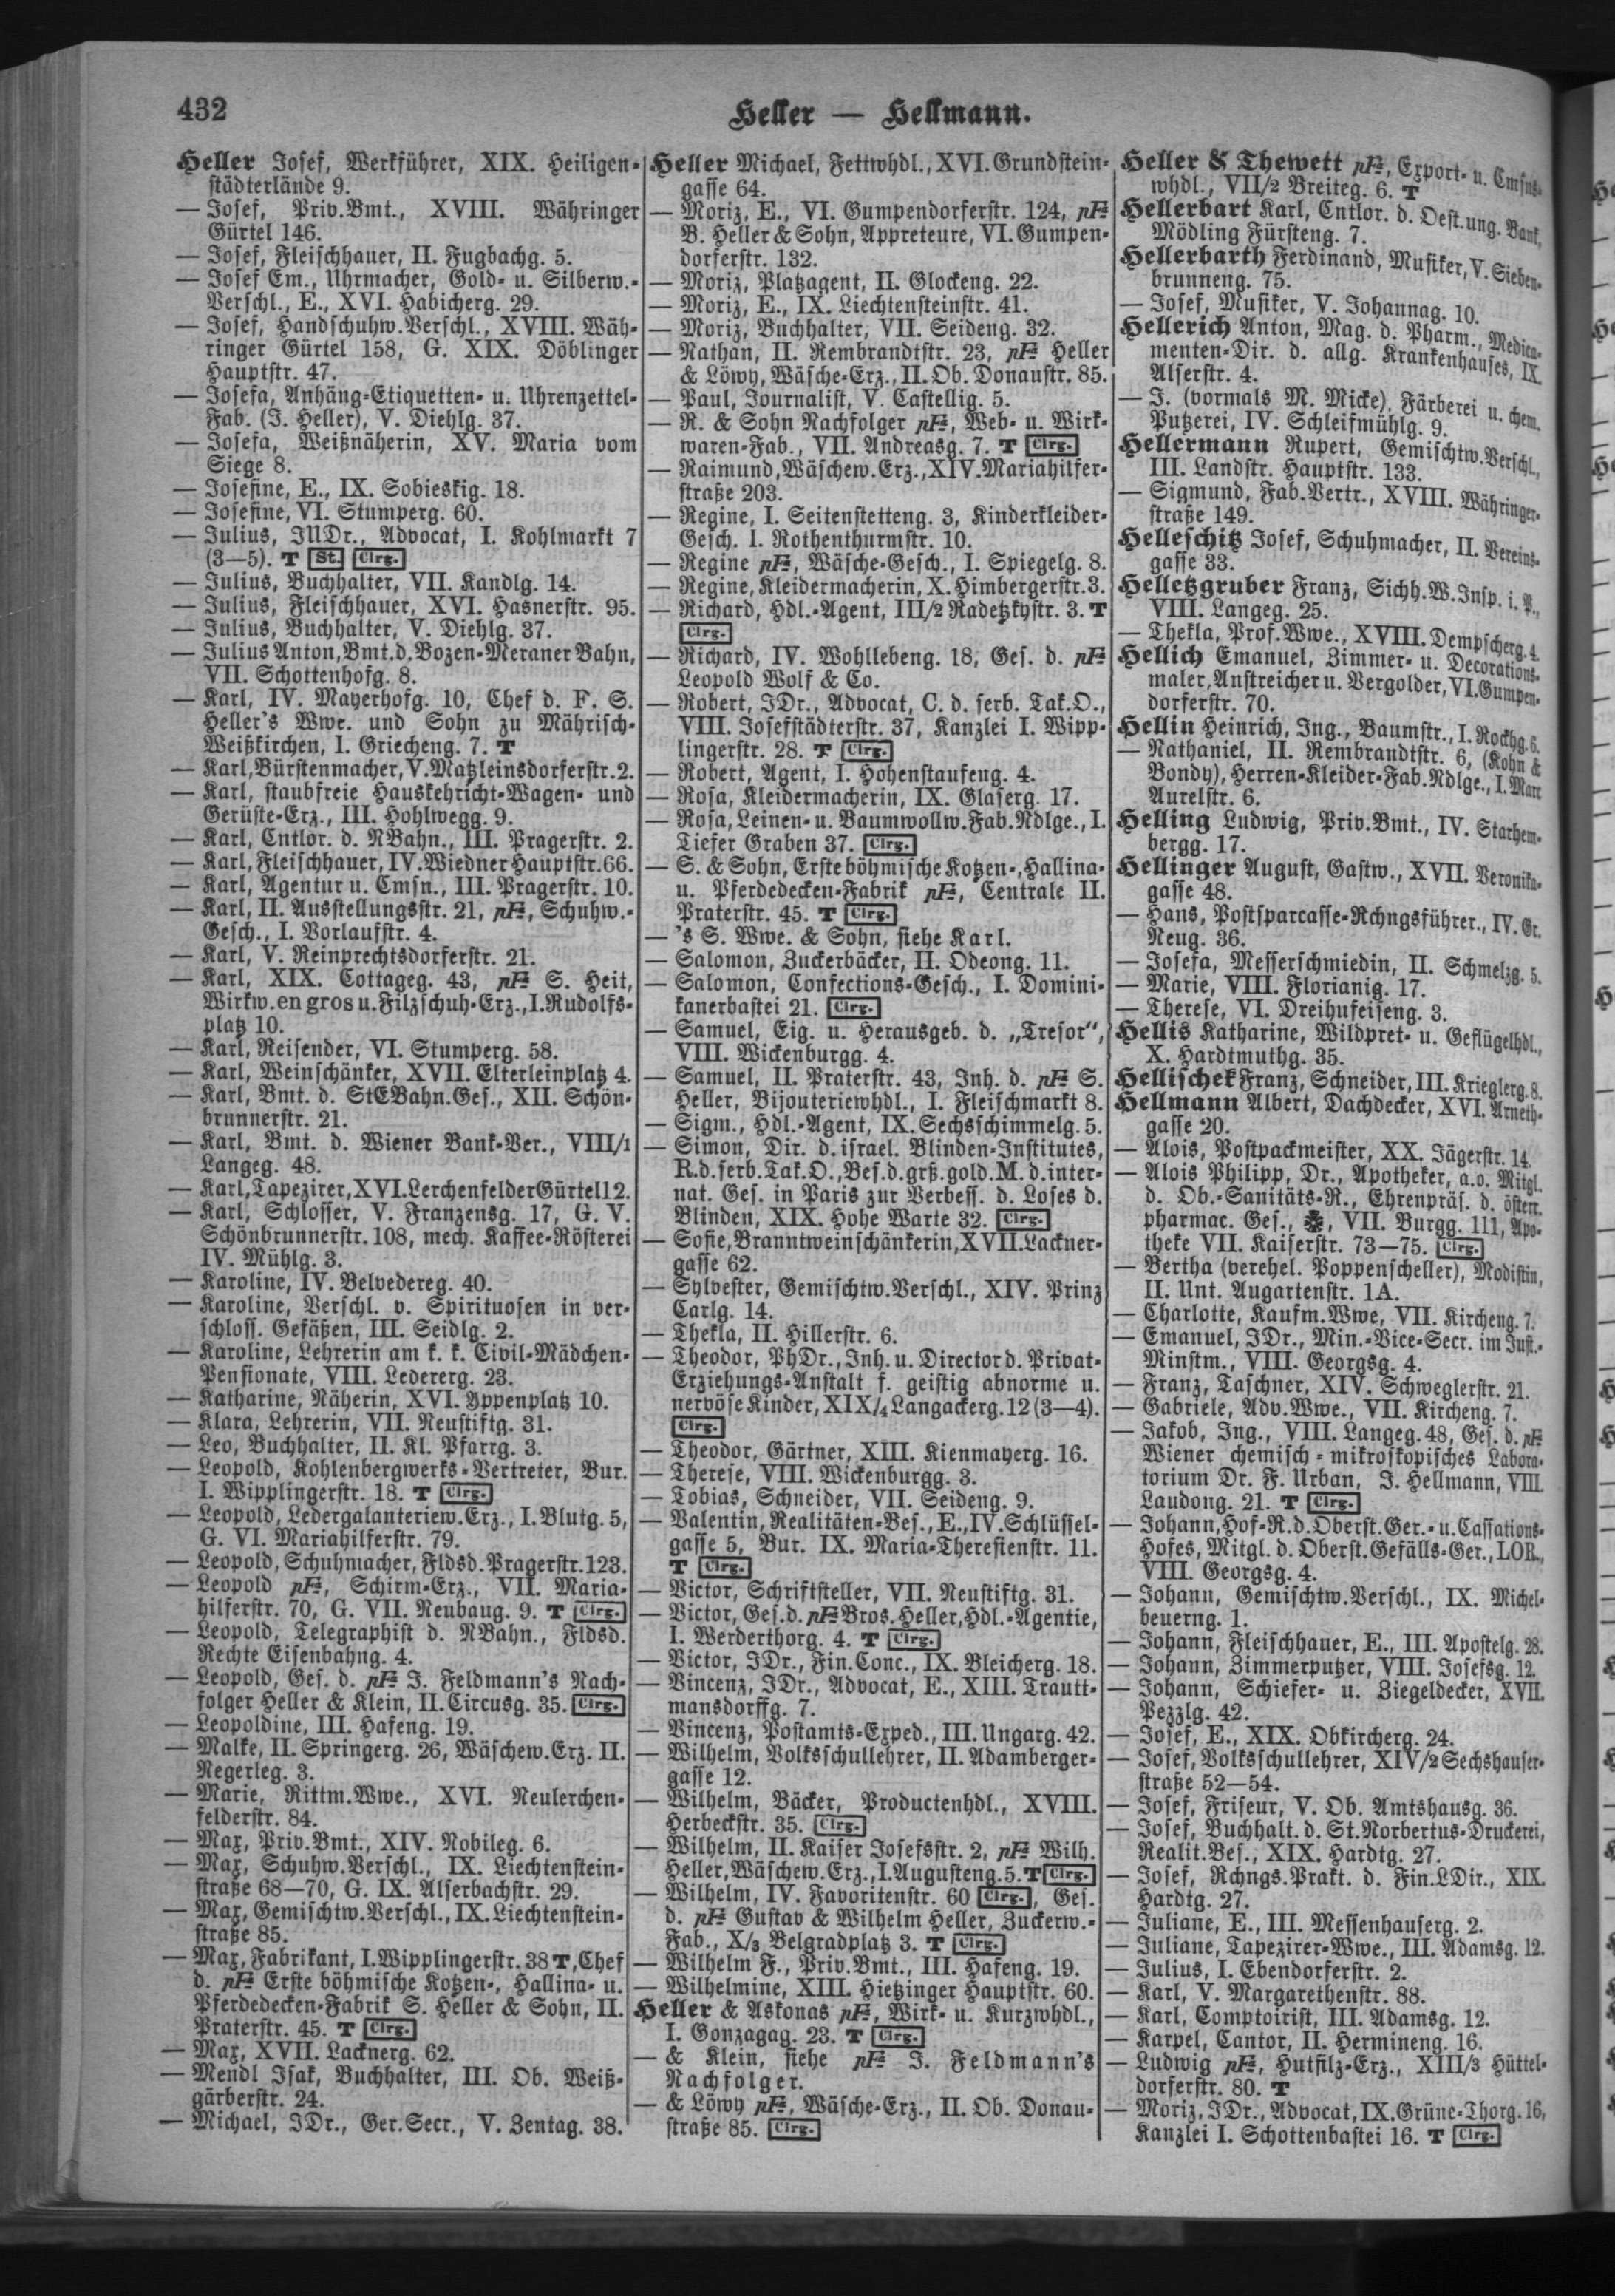 432
Heller — Hellmann.
Heller Josef, Werkführer, XIX. Heiligen-
städterlände 9.
— Josef, Priv.Bmt., XVIII. Währinger
Gürtel 146.
— Josef, Fleischhauer, II. Fugbachg. 5.
— Josef Em., Uhrmacher, Gold- u. Silberw.-
Verschl., E., XVI. Habicherg. 29.
— Josef, Handschuhw.Verschl., XVIII. Wäh-
ringer Gürtel 158, G. XIX. Döblinger
Hauptstr. 47.
— Josefa, Anhäng-Etiquetten- u. Uhrenzettel-
Fab. (J. Heller), V. Diehlg. 37.
— Josefa, Weißnäherin, XV. Maria vom
Siege 8.
— Josefine, E., IX. Sobieskig. 18.
— Josefine, VI. Stumperg. 60.
— Julius, JUDr., Advocat, I. Kohlmarkt 7
(3—5). T St. Clrg.
— Julius, Buchhalter, VII. Kandlg. 14.
— Julius, Fleischhauer, XVI. Hasnerstr. 95.
— Julius, Buchhalter, V. Diehlg. 37.
— Julius Anton, Bmt.d.Bozen-Meraner Bahn,
VII. Schottenhofg. 8.
— Karl, IV. Mayerhofg. 10, Chef d. F. S.
Heller's Wwe. und Sohn zu Mährisch-
Weißkirchen, I. Griecheng. 7. T
— Karl, Bürstenmacher, V. Matzleinsdorferstr. 2.
— Karl, staubfreie Hauskehricht-Wagen- und
Gerüste-Erz., III. Hohlwegg. 9.
— Karl, Cntlor. d. NBahn., III. Pragerstr. 2.
— Karl, Fleischhauer, IV. Wiedner Hauptstr. 66.
— Karl, Agentur u. Cmsn., III. Pragerstr. 10.
— Karl, II. Ausstellungsstr. 21, pF, Schuhw.-
Gesch., I. Vorlaufstr. 4.
— Karl, V. Reinprechtsdorferstr. 21.
— Karl, XIX. Cottageg. 43, pF S. Heit,
Wirkw. en gros u. Filzschuh-Erz., I. Rudolfs-
platz 10.
— Karl, Reisender, VI. Stumperg. 58.
— Karl, Weinschänker, XVII. Elterleinplatz 4.
— Karl, Bmt. d. StEBahn.Ges., XII. Schön-
brunnerstr. 21.
— Karl, Bmt. d. Wiener Bank-Ver., VIII/1
Langeg. 48.
— Karl, Tapezirer, XVI. Lerchenfelder Gürtel 12.
— Karl, Schlosser, V. Franzensg. 17, G. V.
Schönbrunnerstr. 108, mech. Kaffee-Rösterei
IV. Mühlg. 3.
— Karoline, IV. Belvedereg. 40.
— Karoline, Verschl. v. Spirituosen in ver-
schloss. Gefäßen, III. Seidlg. 2.
— Karoline, Lehrerin am k. k. Civil-Mädchen-
Pensionate, VIII. Ledererg. 23.
— Katharine, Näherin, XVI. Yppenplatz 10.
— Klara, Lehrerin, VII. Neustiftg. 31.
— Leo, Buchhalter, II. Kl. Pfarrg. 3.
— Leopold, Kohlenbergwerks-Vertreter, Bur.
I. Wipplingerstr. 18. T Clrg.
— Leopold, Ledergalanteriew.Erz., I. Blutg. 5,
G. VI. Mariahilferstr. 79.
— Leopold, Schuhmacher, Fldsd. Pragerstr. 123.
— Leopold pF, Schirm-Erz., VII. Maria-
hilferstr. 70, G. VII. Neubaug. 9. T Clrg.
— Leopold, Telegraphist d. NBahn., Fldsd.
Rechte Eisenbahng. 4.
— Leopold, Ges. d. pF J. Feldmann's Nach-
folger Heller & Klein, II. Circusg. 35. Clrg.
— Leopoldine, III. Hafeng. 19.
— Malke, II. Springerg. 26, Wäschew.Erz. II.
Negerleg. 3.
— Marie, Rittm.Wwe., XVI. Neulerchen-
felderstr. 84.
— Max, Priv.Bmt., XIV. Nobileg. 6.
— Max, Schuhw.Verschl., IX. Liechtenstein-
straße 68—70, G. IX. Alserbachstr. 29.
— Max, Gemischtw.Verschl., IX. Liechtenstein-
straße 85.
— Max, Fabrikant, I. Wipplingerstr. 38 T, Chef
d. pF Erste böhmische Kotzen-, Hallina- u.
Pferdedecken-Fabrik S. Heller & Sohn, II.
Praterstr. 45. T Clrg.
— Max, XVII. Lacknerg. 62.
— Mendl Isak, Buchhalter, III. Ob. Weiß-
gärberstr. 24.
— Michael, JDr., Ger.Secr., V. Zentag. 38.
Heller Michael, Fettwhdl., XVI. Grundstein-
gasse 64.
— Moriz, E., VI. Gumpendorferstr. 124, pF
B. Heller & Sohn, Appreteure, VI. Gumpen-
dorferstr. 132.
— Moriz, Platzagent, II. Glockeng. 22.
— Moriz, E., IX. Liechtensteinstr. 41.
— Moriz, Buchhalter, VII. Seideng. 32.
— Nathan, II. Rembrandtstr. 23, pF Heller
& Löwy, Wäsche-Erz., II. Ob. Donaustr. 85.
— Paul, Journalist, V. Castellig. 5.
— R. & Sohn Nachfolger pF, Web- u. Wirk-
waren-Fab., VII. Andreasg. 7. T Clrg.
— Raimund, Wäschew.Erz., XIV. Mariahilfer-
straße 203.
— Regine, I. Seitenstetteng. 3, Kinderkleider-
Gesch. I. Rothenthurmstr. 10.
— Regine pF, Wäsche-Gesch., I. Spiegelg. 8.
— Regine, Kleidermacherin, X. Himbergerstr. 3.
— Richard, Hdl.-Agent, III/2 Radetzkystr. 3. T
Clrg.
— Richard, IV. Wohllebeng. 18, Ges. d. pF
Leopold Wolf & Co.
— Robert, JDr., Advocat, C. d. serb. Tak.O.,
VIII. Josefstädterstr. 37, Kanzlei I. Wipp-
lingerstr. 28. T Clrg.
— Robert, Agent, I. Hohenstaufeng. 4.
— Rosa, Kleidermacherin, IX. Glaserg. 17.
— Rosa, Leinen- u. Baumwollw.Fab.Ndlge., I.
Tiefer Graben 37. Clrg.
— S. & Sohn, Erste böhmische Kotzen-, Hallina-
u. Pferdedecken-Fabrik pF, Centrale II.
Praterstr. 45. T Clrg.
— 's S. Wwe. & Sohn, siehe Karl.
— Salomon, Zuckerbäcker, II. Odeong. 11.
— Salomon, Confections-Gesch., I. Domini-
kanerbastei 21. Clrg.
— Samuel, Eig. u. Herausgeb. d. „Tresor",
VIII. Wickenburgg. 4.
— Samuel, II. Praterstr. 43, Inh. d. pF S.
Heller, Bijouteriewhdl., I. Fleischmarkt 8.
— Sigm., Hdl.-Agent, IX. Sechsschimmelg. 5.
— Simon, Dir. d. israel. Blinden-Institutes,
R.d.serb.Tak.O., Bes.d.grß.gold.M.d.inter-
nat. Ges. in Paris zur Verbess. d. Loses d.
Blinden, XIX. Hohe Warte 32. Clrg.
— Sofie, Branntweinschänkerin, XVII. Lackner-
gasse 62.
— Sylvester, Gemischtw.Verschl., XIV. Prinz
Carlg. 14.
— Thekla, II. Hillerstr. 6.
— Theodor, PhDr., Inh. u. Director d. Privat-
Erziehungs-Anstalt f. geistig abnorme u.
nervöse Kinder, XIX/4 Langackerg. 12 (3—4).
Clrg.
— Theodor, Gärtner, XIII. Kienmayerg. 16.
— Therese, VIII. Wickenburgg. 3.
— Tobias, Schneider, VII. Seideng. 9.
— Valentin, Realitäten-Bes., E., IV. Schlüssel-
gasse 5, Bur. IX. Maria-Theresienstr. 11.
T Clrg.
— Victor, Schriftsteller, VII. Neustiftg. 31.
— Victor, Ges. d. pF Bros. Heller, Hdl.-Agentie,
I. Werderthorg. 4. T Clrg.
— Victor, JDr., Fin.Conc., IX. Bleicherg. 18.
— Vincenz, JDr., Advocat, E., XIII. Trautt-
mansdorffg. 7.
— Vincenz, Postamts-Exped., III. Ungarg. 42.
— Wilhelm, Volksschullehrer, II. Adamberger-
gasse 12.
— Wilhelm, Bäcker, Productenhdl., XVIII.
Herbeckstr. 35. Clrg.
— Wilhelm, II. Kaiser Josefsstr. 2, pF Wilh.
Heller, Wäschew.Erz., I. Augusteng. 5. T Clrg.
— Wilhelm, IV. Favoritenstr. 60 Clrg., Ges.
d. pF Gustav & Wilhelm Heller, Zuckerw.-
Fab., X/3 Belgradplatz 3. T Clrg.
— Wilhelm F., Priv.Bmt., III. Hafeng. 19.
— Wilhelmine, XIII. Hietzinger Hauptstr. 60.
Heller & Askonas pF, Wirk- u. Kurzwhdl.,
I. Gonzagag. 23. T Clrg.
— & Klein, siehe pF J. Feldmann's
Nachfolger.
— & Löwy pF, Wäsche-Erz., II. Ob. Donau-
straße 85. Clrg.
Heller & Thewett pF, Export- u. Cmsns-
whdl., VII/2 Breiteg. 6. T
Hellerbart Karl, Cntlor. d. Oest.ung. Bank,
Mödling Fürsteng. 7.
Hellerbarth Ferdinand, Musiker, V. Sieben-
brunneng. 75.
— Josef, Musiker, V. Johannag. 10.
Hellerich Anton, Mag. d. Pharm., Medica-
menten-Dir. d. allg. Krankenhauses, IX.
Alserstr. 4.
— J. (vormals M. Micke), Färberei u. chem.
Putzerei, IV. Schleifmühlg. 9.
Hellermann Rupert, Gemischtw.Verschl.,
III. Landstr. Hauptstr. 133.
— Sigmund, Fab.Vertr., XVIII. Währinger-
straße 149.
Helleschitz Josef, Schuhmacher, II. Vereins-
gasse 33.
Helletzgruber Franz, Sichh.W.Insp. i. P.,
VIII. Langeg. 25.
— Thekla, Prof.Wwe., XVIII. Dempscherg. 4.
Hellich Emanuel, Zimmer- u. Decorations-
maler, Anstreicher u. Vergolder, VI. Gumpen-
dorferstr. 70.
Hellin Heinrich, Ing., Baumstr., I. Rockhg. 6.
— Nathaniel, II. Rembrandtstr. 6, (Kohn &
Bondy), Herren-Kleider-Fab.Ndlge., I. Marc
Aurelstr. 6.
Helling Ludwig, Priv.Bmt., IV. Starhem-
bergg. 17.
Hellinger August, Gastw., XVII. Veronika-
gasse 48.
— Hans, Postsparcasse-Rchngsführer., IV. Gr.
Neug. 36.
— Josefa, Messerschmiedin, II. Schmelzg. 5.
— Marie, VIII. Florianig. 17.
— Therese, VI. Dreihufeiseng. 3.
Hellis Katharine, Wildpret- u. Geflügelhdl.,
X. Hardtmuthg. 35.
Hellischek Franz, Schneider, III. Krieglerg. 8.
Hellmann Albert, Dachdecker, XVI. Arneth-
gasse 20.
— Alois, Postpackmeister, XX. Jägerstr. 14.
— Alois Philipp, Dr., Apotheker, a.o. Mitgl.
d. Ob.-Sanitäts-R., Ehrenpräs. d. österr.
pharmac. Ges., VII. Burgg. 111, Apo-
theke VII. Kaiserstr. 73—75. Clrg.
— Bertha (verehel. Poppenscheller), Modistin,
II. Unt. Augartenstr. 1A.
— Charlotte, Kaufm.Wwe, VII. Kircheng. 7.
— Emanuel, JDr., Min.-Vice-Secr. im Just.-
Minstm., VIII. Georgsg. 4.
— Franz, Taschner, XIV. Schweglerstr. 21.
— Gabriele, Adv.Wwe., VII. Kircheng. 7.
— Jakob, Ing., VIII. Langeg. 48, Ges. d. pF
Wiener chemisch-mikroskopisches Labora-
torium Dr. F. Urban, J. Hellmann, VIII.
Laudong. 21. T Clrg.
— Johann, Hof-R. d. Oberst. Ger.- u. Cassations-
Hofes, Mitgl. d. Oberst. Gefälls-Ger., LOR.,
VIII. Georgsg. 4.
— Johann, Gemischtw.Verschl., IX. Michel-
beuerng. 1.
— Johann, Fleischhauer, E., III. Apostelg. 28.
— Johann, Zimmerputzer, VIII. Josefsg. 12.
— Johann, Schiefer- u. Ziegeldecker, XVII.
Pezzlg. 42.
— Josef, E., XIX. Obkircherg. 24.
— Josef, Volksschullehrer, XIV/2 Sechshauser-
straße 52—54.
— Josef, Friseur, V. Ob. Amtshausg. 36.
— Josef, Buchhalt. d. St.Norbertus-Druckerei,
Realit.Bes., XIX. Hardtg. 27.
— Josef, Rchngs.Prakt. d. Fin.LDir., XIX.
Hardtg. 27.
— Juliane, E., III. Messenhauserg. 2.
— Juliane, Tapezirer-Wwe., III. Adamsg. 12.
— Julius, I. Ebendorferstr. 2.
— Karl, V. Margarethenstr. 88.
— Karl, Comptoirist, III. Adamsg. 12.
— Karpel, Cantor, II. Hermineng. 16.
— Ludwig pF, Hutfilz-Erz., XIII/3 Hüttel-
dorferstr. 80. T
— Moriz, JDr., Advocat, IX. Grüne-Thorg. 16,
Kanzlei I. Schottenbastei 16. T Clrg.